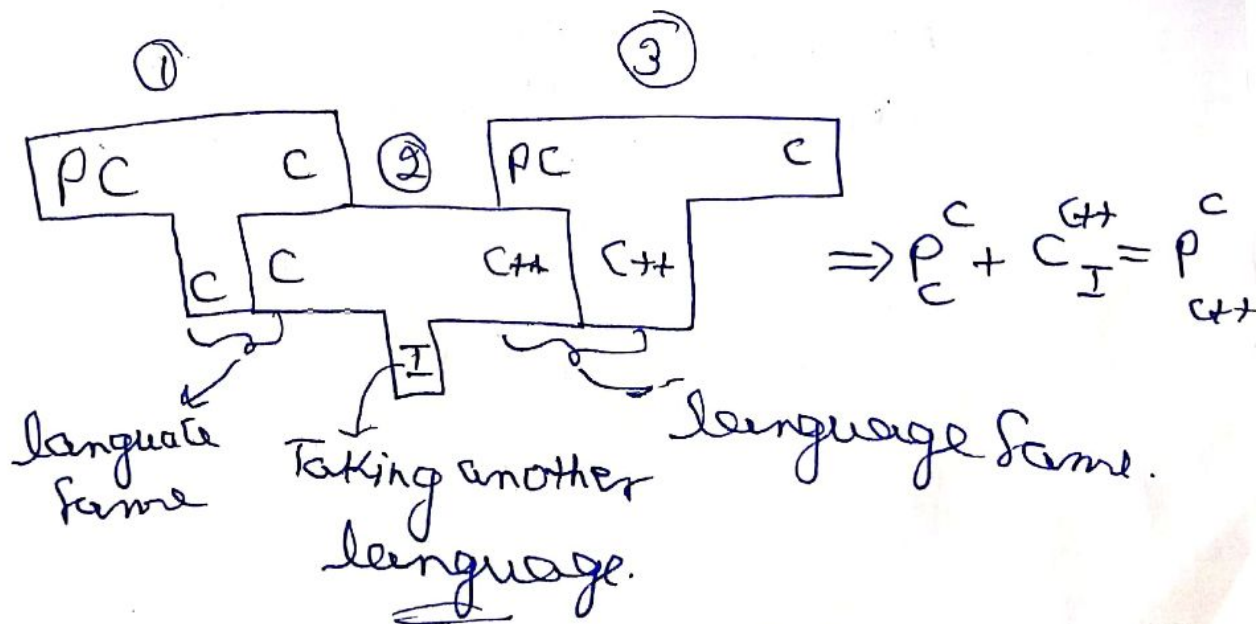 ① ③
PC C ② PC C
C C C++ C++ ⇒ P_C^C + C_I^{C++} = P_{C++}^C
I
languate same
Taking another language.
language same.